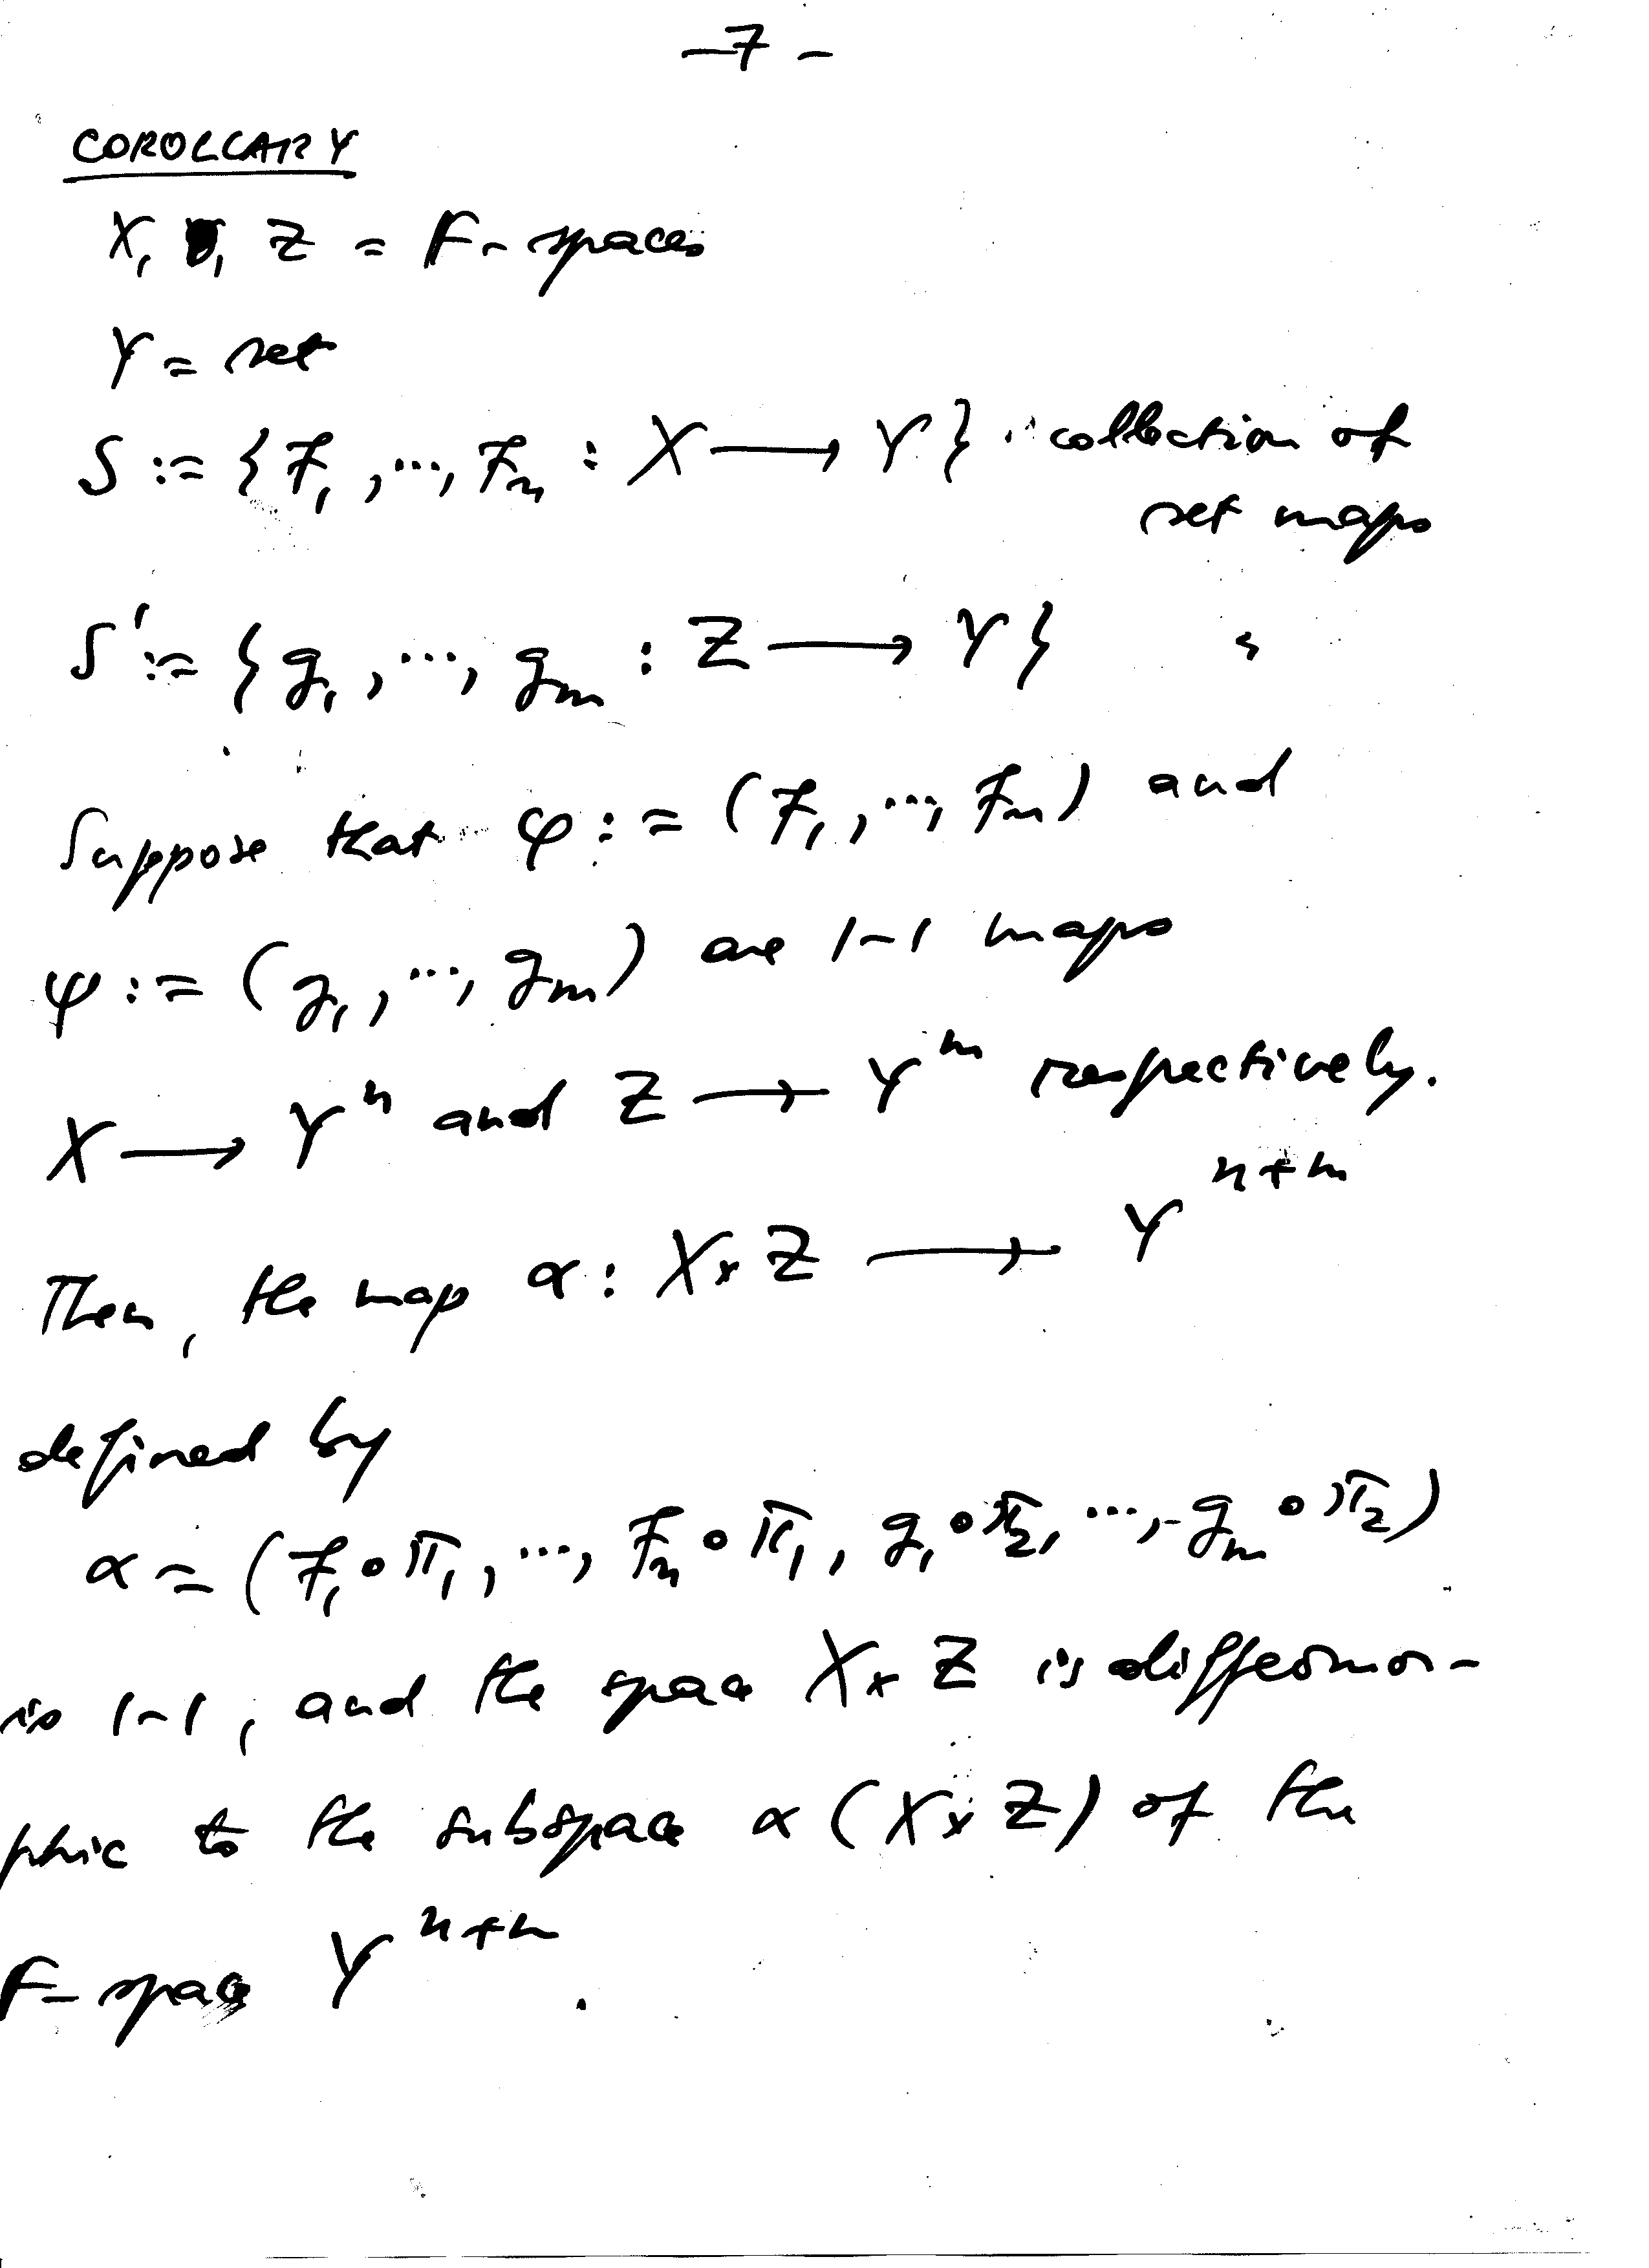 -7-
COROLLARY
X, , Z = F-spaces
Y = set
S := {F₁, ..., Fₙ : X ⟶ Y} collection of
set maps
S' := {g₁, ..., gₘ : Z ⟶ Y} "
Suppose that φ := (F₁, ..., Fₙ) and
ψ := (g₁, ..., gₘ) are 1-1 maps
X ⟶ Yⁿ and Z ⟶ Yᵐ respectively.
Then, the map α : X × Z ⟶ Yⁿ⁺ᵐ
defined by
α = (F₁∘π₁, ..., Fₙ∘π₁, g₁∘π₂, ..., gₘ∘π₂)
is 1-1, and the space X × Z is diffeomor-
phic to the subspace α(X × Z) of the
F-space Yⁿ⁺ᵐ.